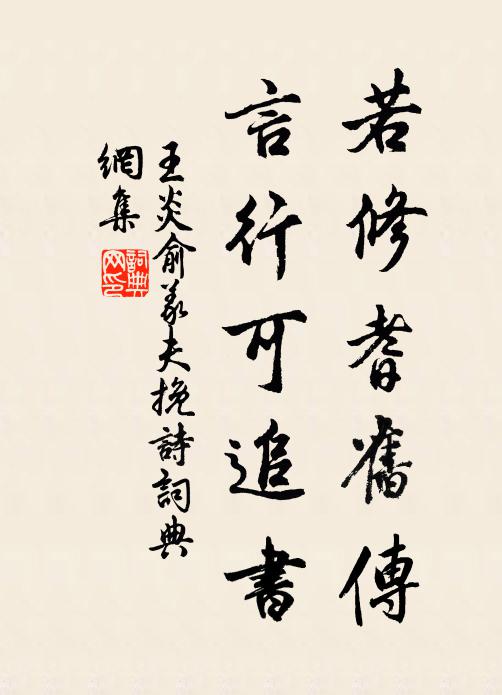 若修耆舊傳
言行可追書
王炎俞義夫挽詩詞典
網集
詞典
网印